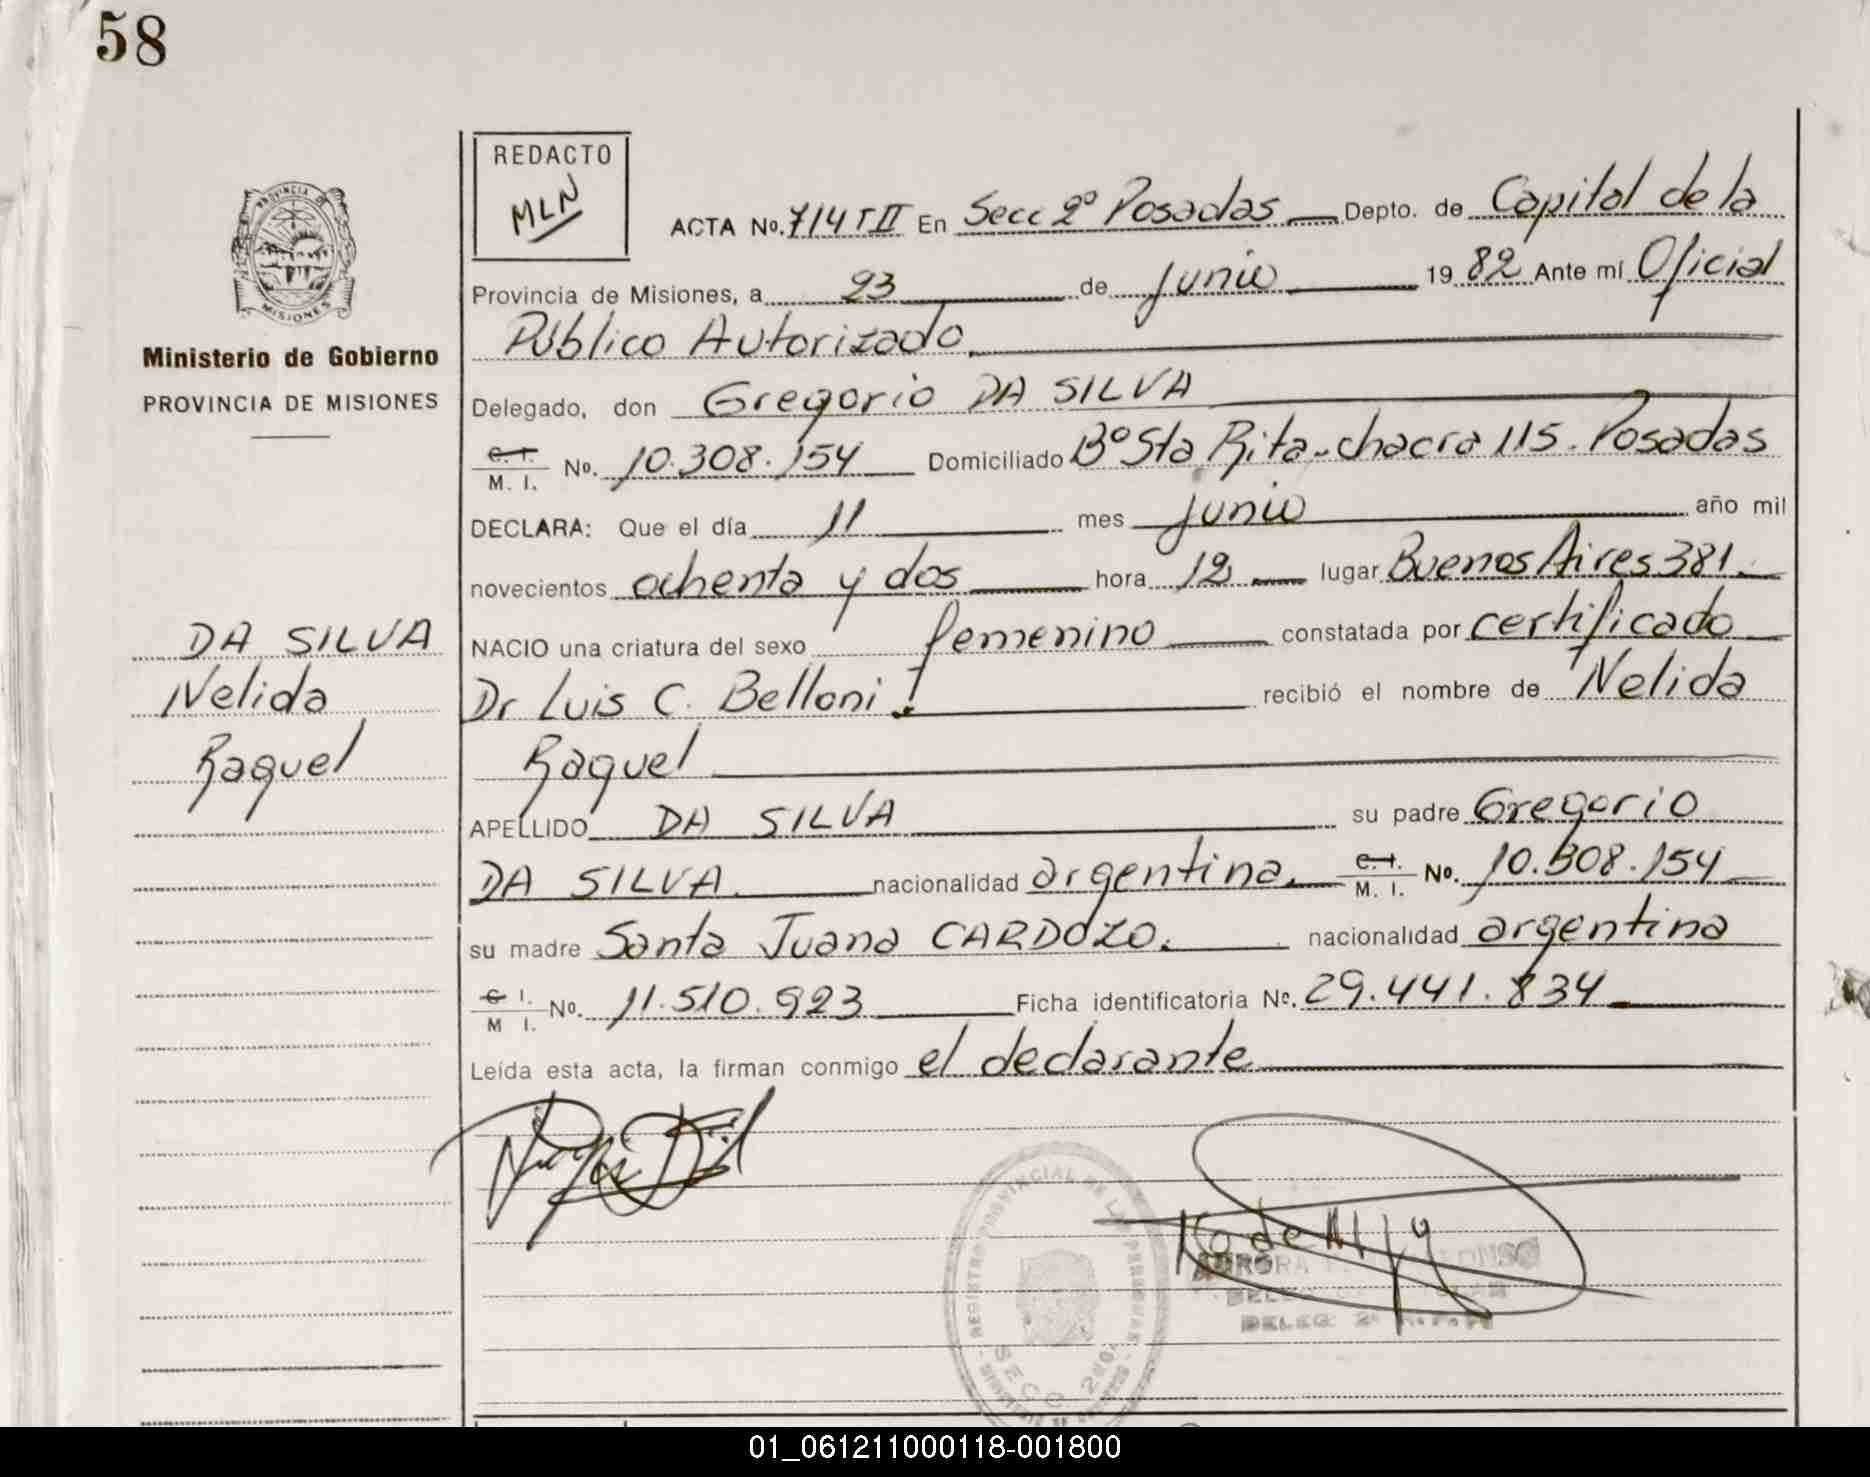 58
REDACTO
MLN
PROVINCIA DE
MISIONES
Ministerio de Gobierno
PROVINCIA DE MISIONES
ACTA Nº. 714 T II En Secc 2º Posadas Depto. de Capital de la
Provincia de Misiones, a 23 de junio 19 82 Ante mí Oficial
Público Autorizado
Delegado, don Gregorio DA SILVA
C. I.
M. I. Nº. 10.308.154 Domiciliado Bº Sta Rita - chacra 115. Posadas
DECLARA: Que el día 11 mes junio año mil
novecientos ochenta y dos hora 12 lugar Buenos Aires 381.
NACIO una criatura del sexo femenino constatada por certificado
Dr Luis C. Belloni. recibió el nombre de Nelida
Raquel
APELLIDO DA SILVA su padre Gregorio
DA SILVA. nacionalidad argentina. C. I.
M. I. Nº. 10.308.154
su madre Santa Juana CARDOZO. nacionalidad argentina
C I.
M I. Nº. 11.510.923 Ficha identificatoria Nº. 29.441.834
Leída esta acta, la firman conmigo el declarante
DA SILVA
Nelida
Raquel
REGISTRO PROVINCIAL DE LAS PERSONAS
SECC 2da
AURORA ALONSO
DELEG. 2ª
01_061211000118-001800